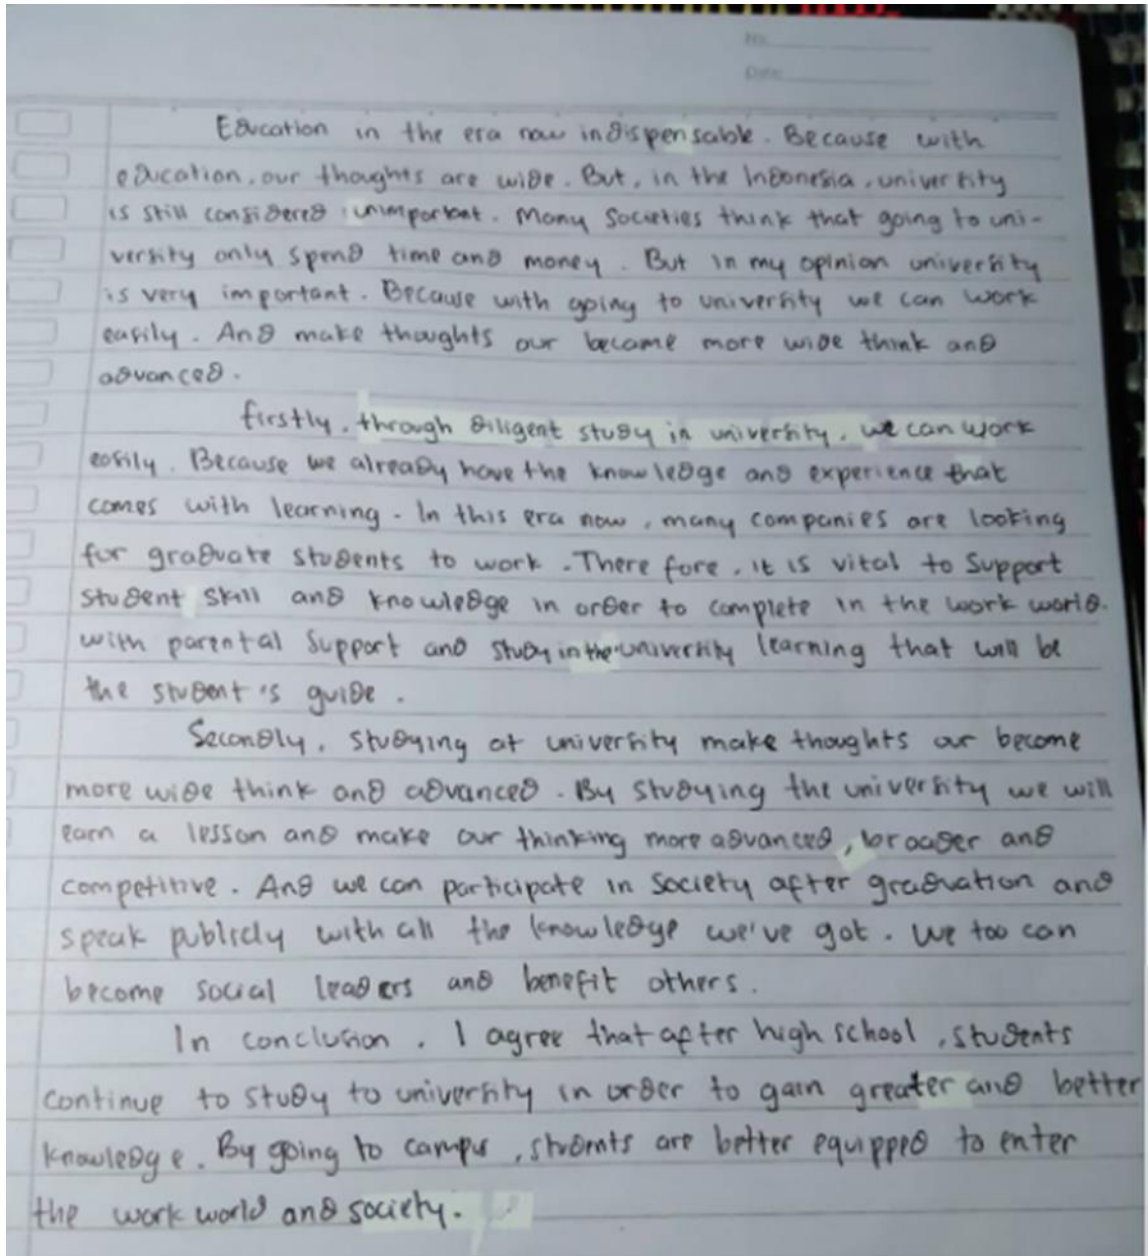 No.
Date:
Education in the era now indispensable. Because with
education, our thoughts are wide. But, in the Indonesia, university
is still considered unimportant. Many societies think that going to uni-
versity only spend time and money. But in my opinion university
is very important. Because with going to university we can work
easily. And make thoughts our become more wide think and
advanced.
firstly, through diligent study in university, we can work
easily. Because we already have the knowledge and experience that
comes with learning. In this era now, many companies are looking
for graduate students to work. There fore, it is vital to support
student skill and knowledge in order to complete in the work world.
with parental support and study in the university learning that will be
the student's guide.
Secondly, studying at university make thoughts our become
more wide think and advanced. By studying the university we will
earn a lesson and make our thinking more advanced, broader and
competitive. And we can participate in society after graduation and
speak publicly with all the knowledge we've got. We too can
become social leaders and benefit others.
In conclusion, I agree that after high school, students
continue to study to university in order to gain greater and better
knowledge. By going to campus, students are better equipped to enter
the work world and society.